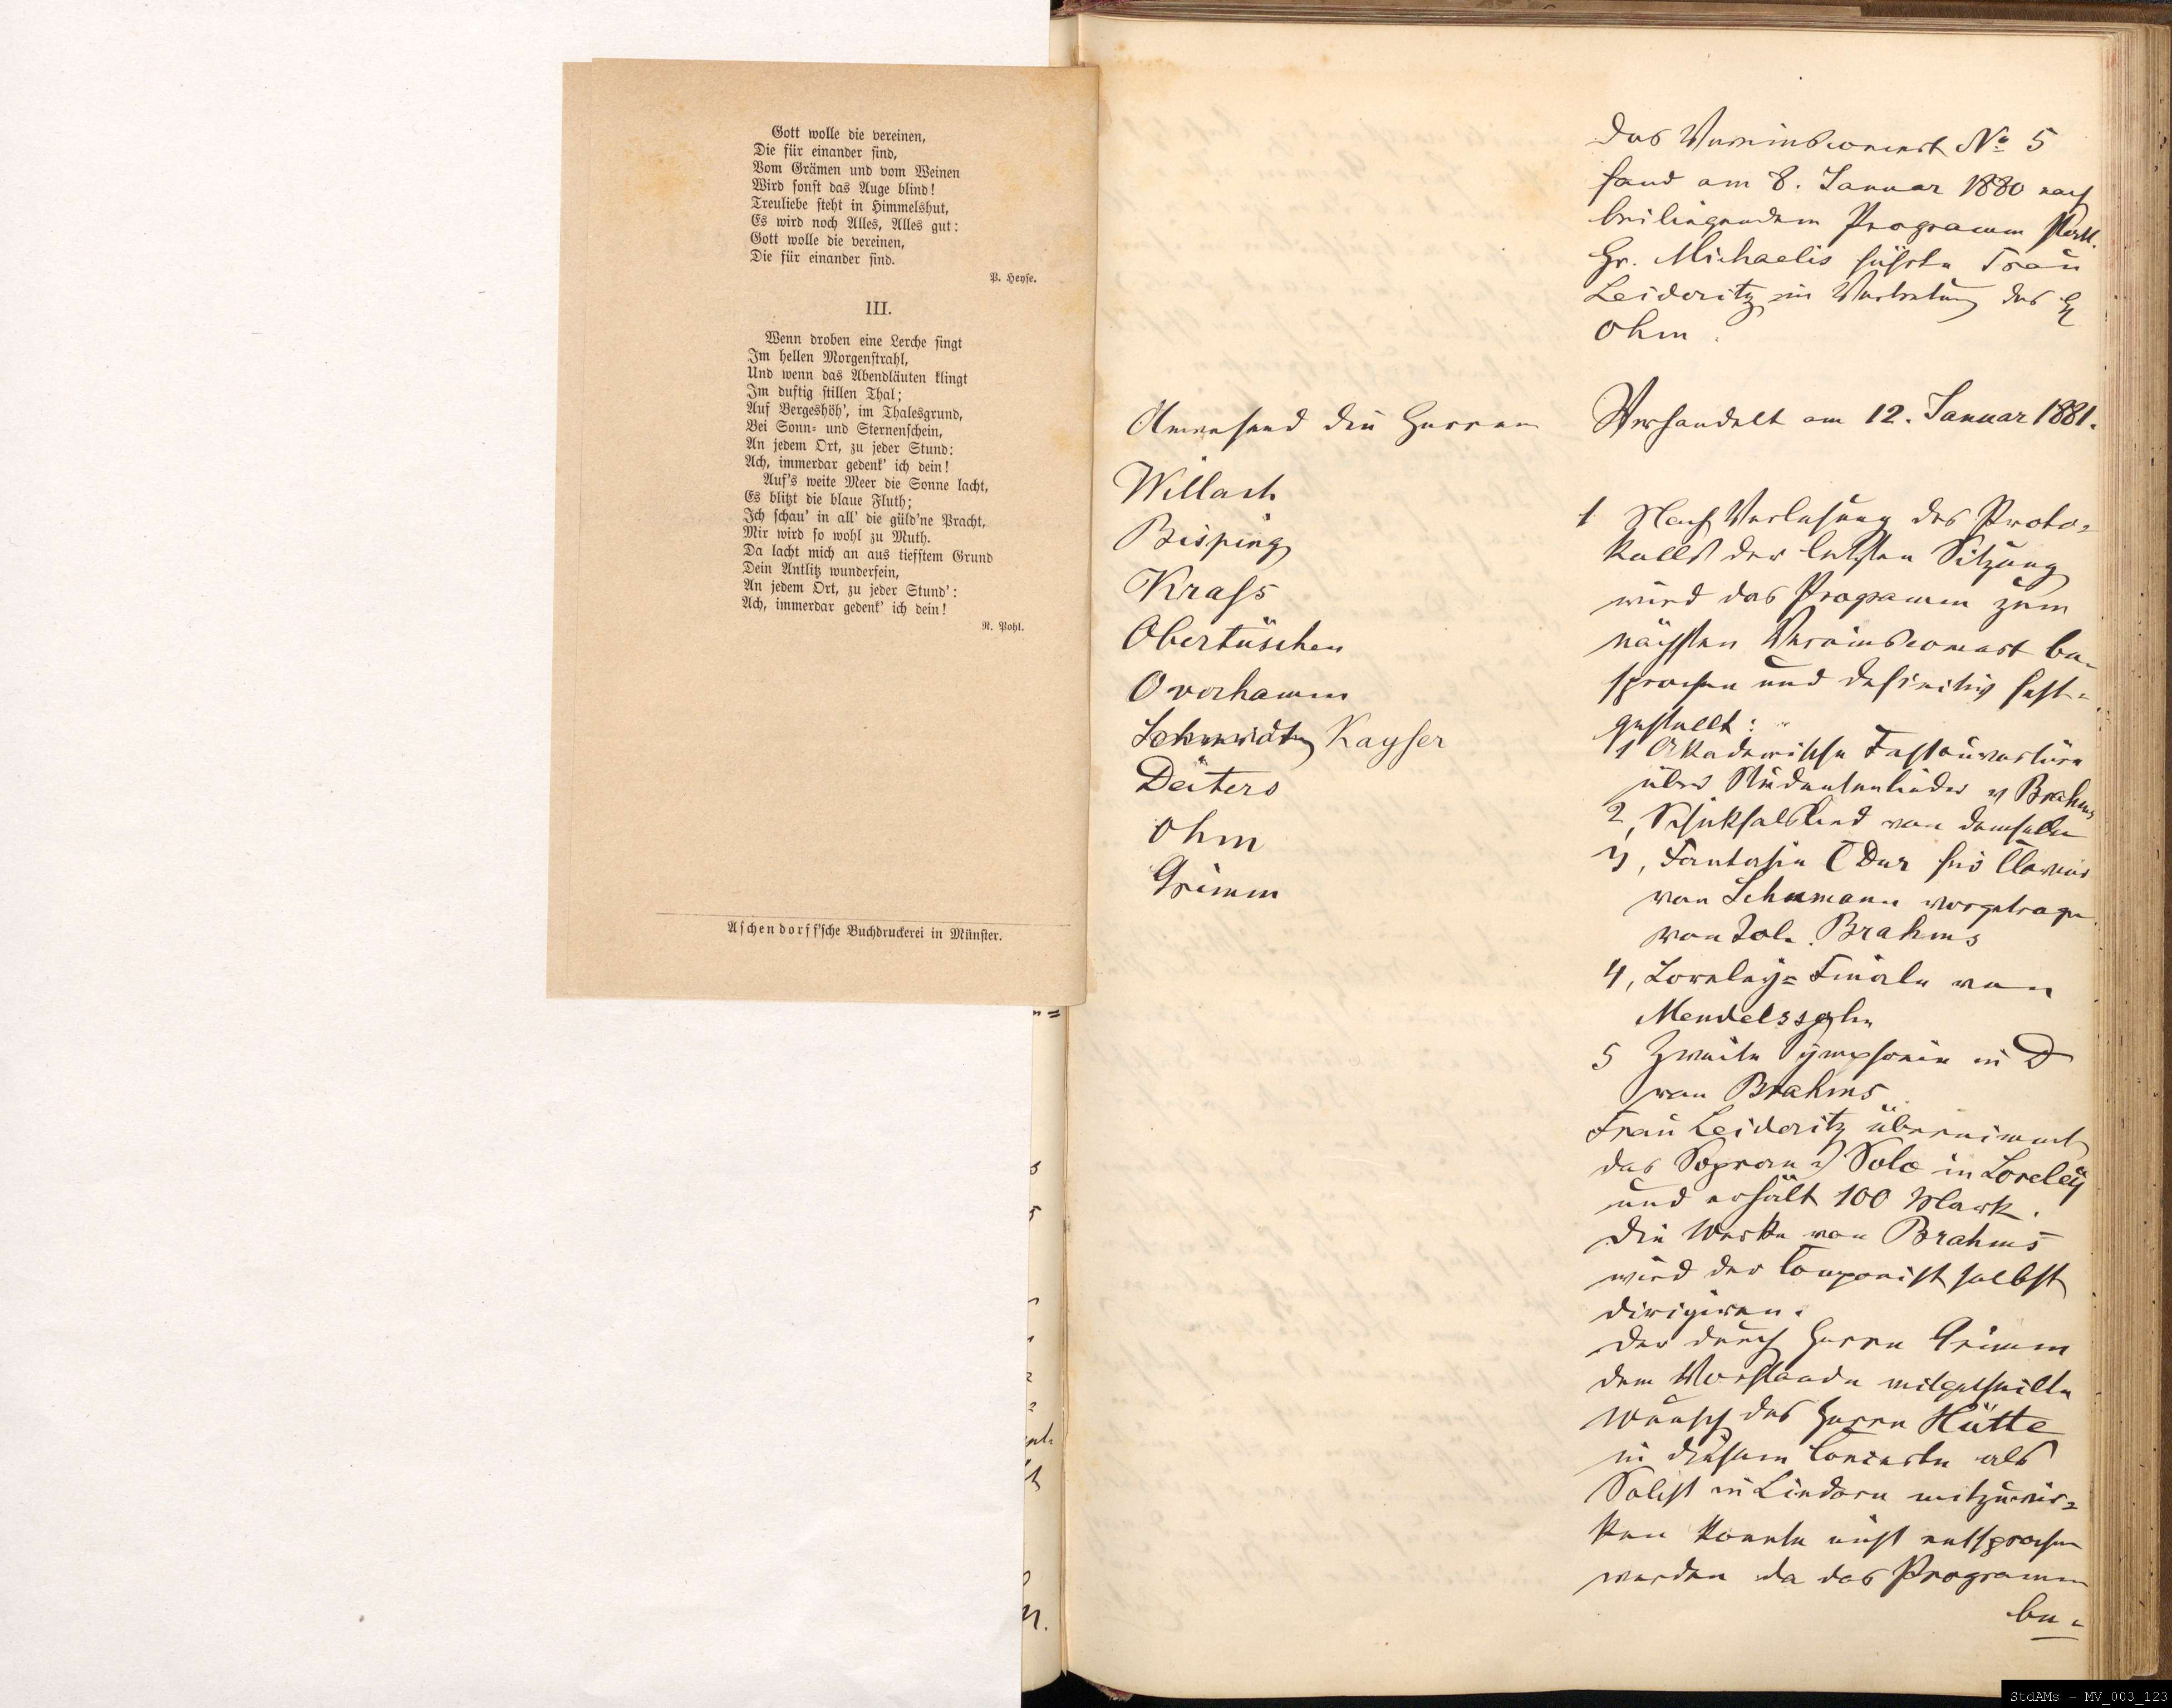 Gott wolle die vereinen,
Die für einander sind,
Vom Grämen und vom Weinen
Wird sonst das Auge blind!
Treuliebe steht in Himmelshut,
Es wird noch Alles, Alles gut:
Gott wolle die vereinen,
Die für einander sind.
P. Heyse.
III.
Wenn droben eine Lerche singt
Im hellen Morgenstrahl,
Und wenn das Abendläuten klingt
Im duftig stillen Thal;
Auf Bergeshöh', im Thalesgrund,
Bei Sonn- und Sternenschein,
An jedem Ort, zu jeder Stund:
Ach, immerdar gedenk' ich dein!
Auf's weite Meer die Sonne lacht,
Es blitzt die blaue Fluth;
Ich schau' in all' die güld'ne Pracht,
Mir wird so wohl zu Muth.
Da lacht mich an aus tiefstem Grund
Dein Antlitz wunderfein,
An jedem Ort, zu jeder Stund':
Ach, immerdar gedenk' ich dein!
R. Pohl.
Aschendorff'sche Buchdruckerei in Münster.
Das Vereinsconcert No 5
fand am 8. Januar 1880 nach
beiliegendem Programm statt.
Hr. Michaelis führte Frau
Leideritz in Vertretung des H
Ohm.
Anwesend die Herren
Willach
Bisping
Krass
Obertüschen
Overhamm
Schmidts Kayser
Deiters
Ohm
Grimm
Verhandelt am 12. Januar 1881.
1 Nach Verlesung des Proto-
kolls der letzten Sitzung
wird das Programm zum
nächsten Vereinsconcert be-
sprochen und definitiv fest-
gestellt:
1 Akademische Festouvertüre
über Studentenlieder v Brahms
2, Schicksalslied von demselben
3, Fantasie C Dur für Clavier
von Schumann vorgetragen
von Joh. Brahms
4, Loreley-Finale von
Mendelssohn
5 Zweite Symphonie in D
von Brahms
Frau Leideritz übernimmt
das Sopran Solo in Loreley
und erhält 100 Mark.
Die Werke von Brahms
wird der Componist selbst
dirigiren.
Der durch Herrn Grimm
dem Vorstande mitgetheilte
Wunsch des Herrn Hütte
in diesem Concerte als
Solist in Liedern mitzuwir-
ken konnte nicht entsprochen
werden da das Programm
be-
StdAMs - MV_003_123